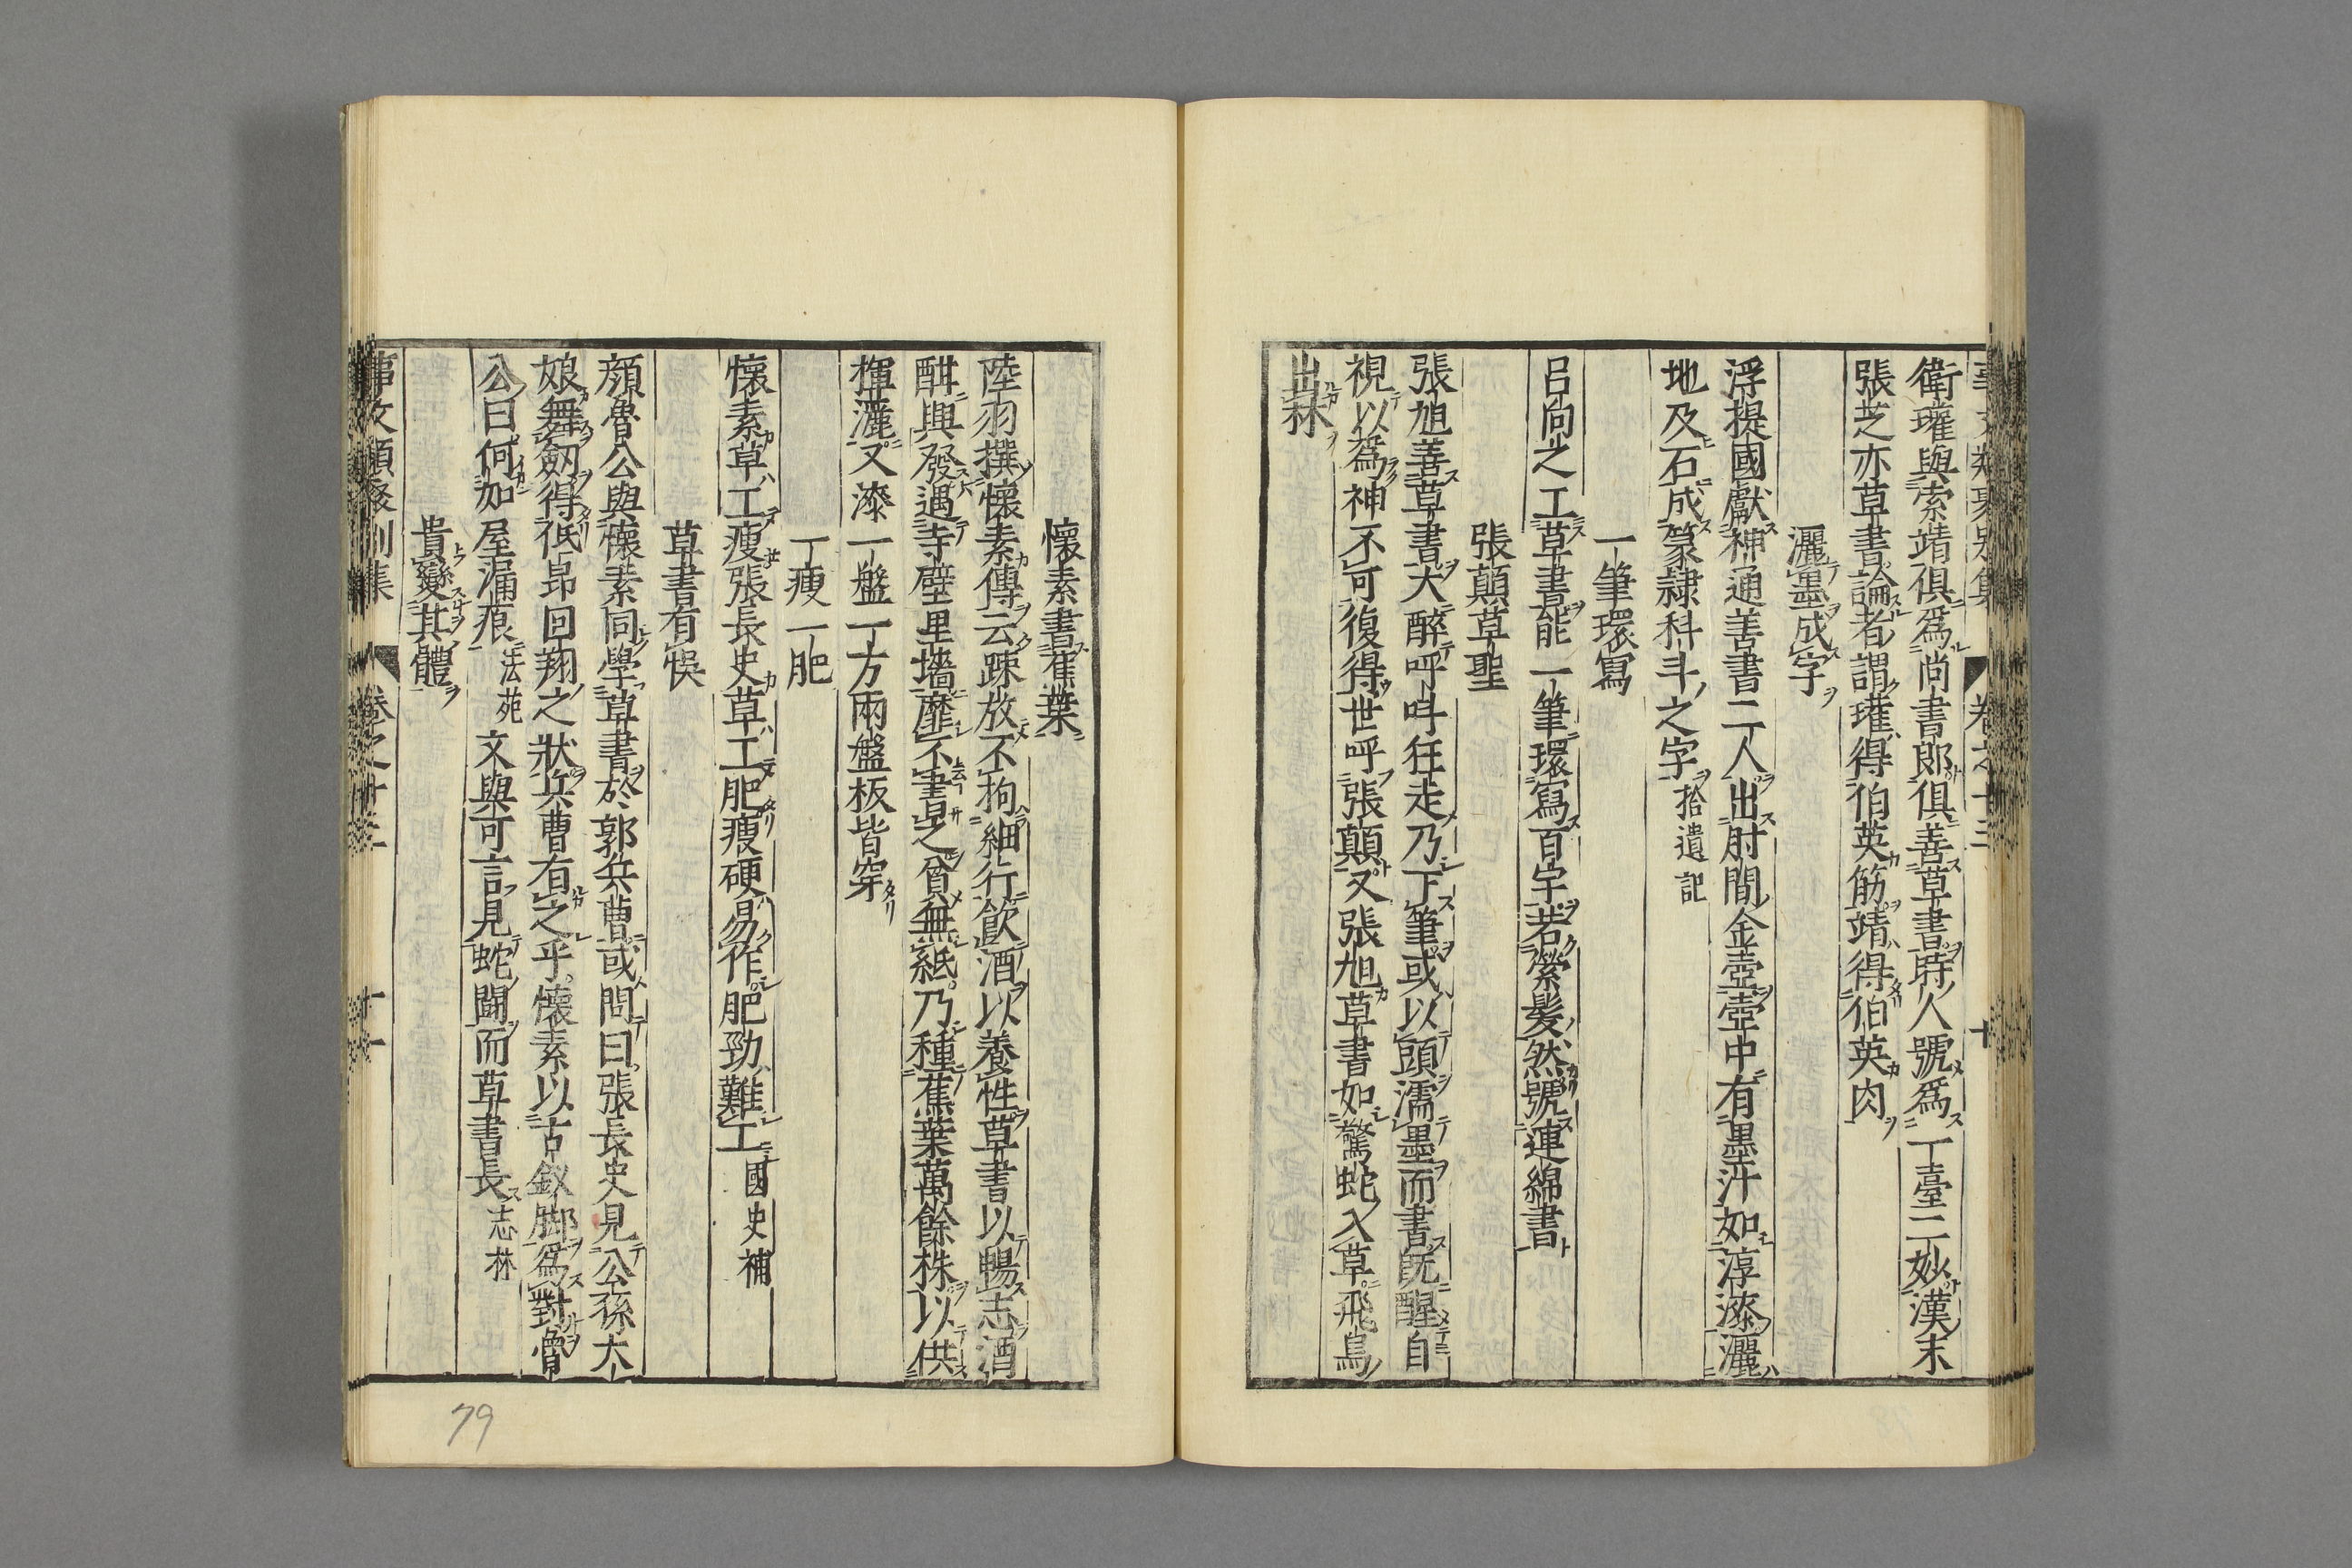 衛瓘與索靖俱爲尚書郎俱善草書時人號爲一臺二妙漢末
張芝亦草書論者謂瓘得伯英筋靖得伯英肉
灑墨成字
浮提國獻神通善書二人出肘間金壺壺中有墨汁如淳漆灑
地及石成篆隷科斗之字拾遺記
一筆環寫
呂向之工草書能一筆環寫百字若縈髮然號連綿書
張顛草聖
張旭善草書大醉呼呌狂走乃下筆或以頭濡墨而書既醒自
視以爲神不可復得世呼張顛又張旭草書如驚蛇入草飛鳥
出林
懷素書蕉葉
陸羽撰懷素傳云疎放不拘細行飲酒以養性草書以暢志酒
酣興發遇寺壁里墻靡不書之貧無紙乃種蕉葉萬餘株以供
揮灑又漆一盤一方兩盤板皆穿
一瘦一肥
懷素草工瘦張長史草工肥瘦硬易作肥勁難工國史補
草書有悞
顔魯公與懷素同學草書於郭兵曹或問曰張長史見公孫大
娘舞劔得低昻回翔之狀兵曹有之乎懷素以古釵脚爲對魯
公曰何如屋漏痕法苑文與可言見蛇鬭而草書長志林
貴變其體
事文類聚別集 卷之十三 十一